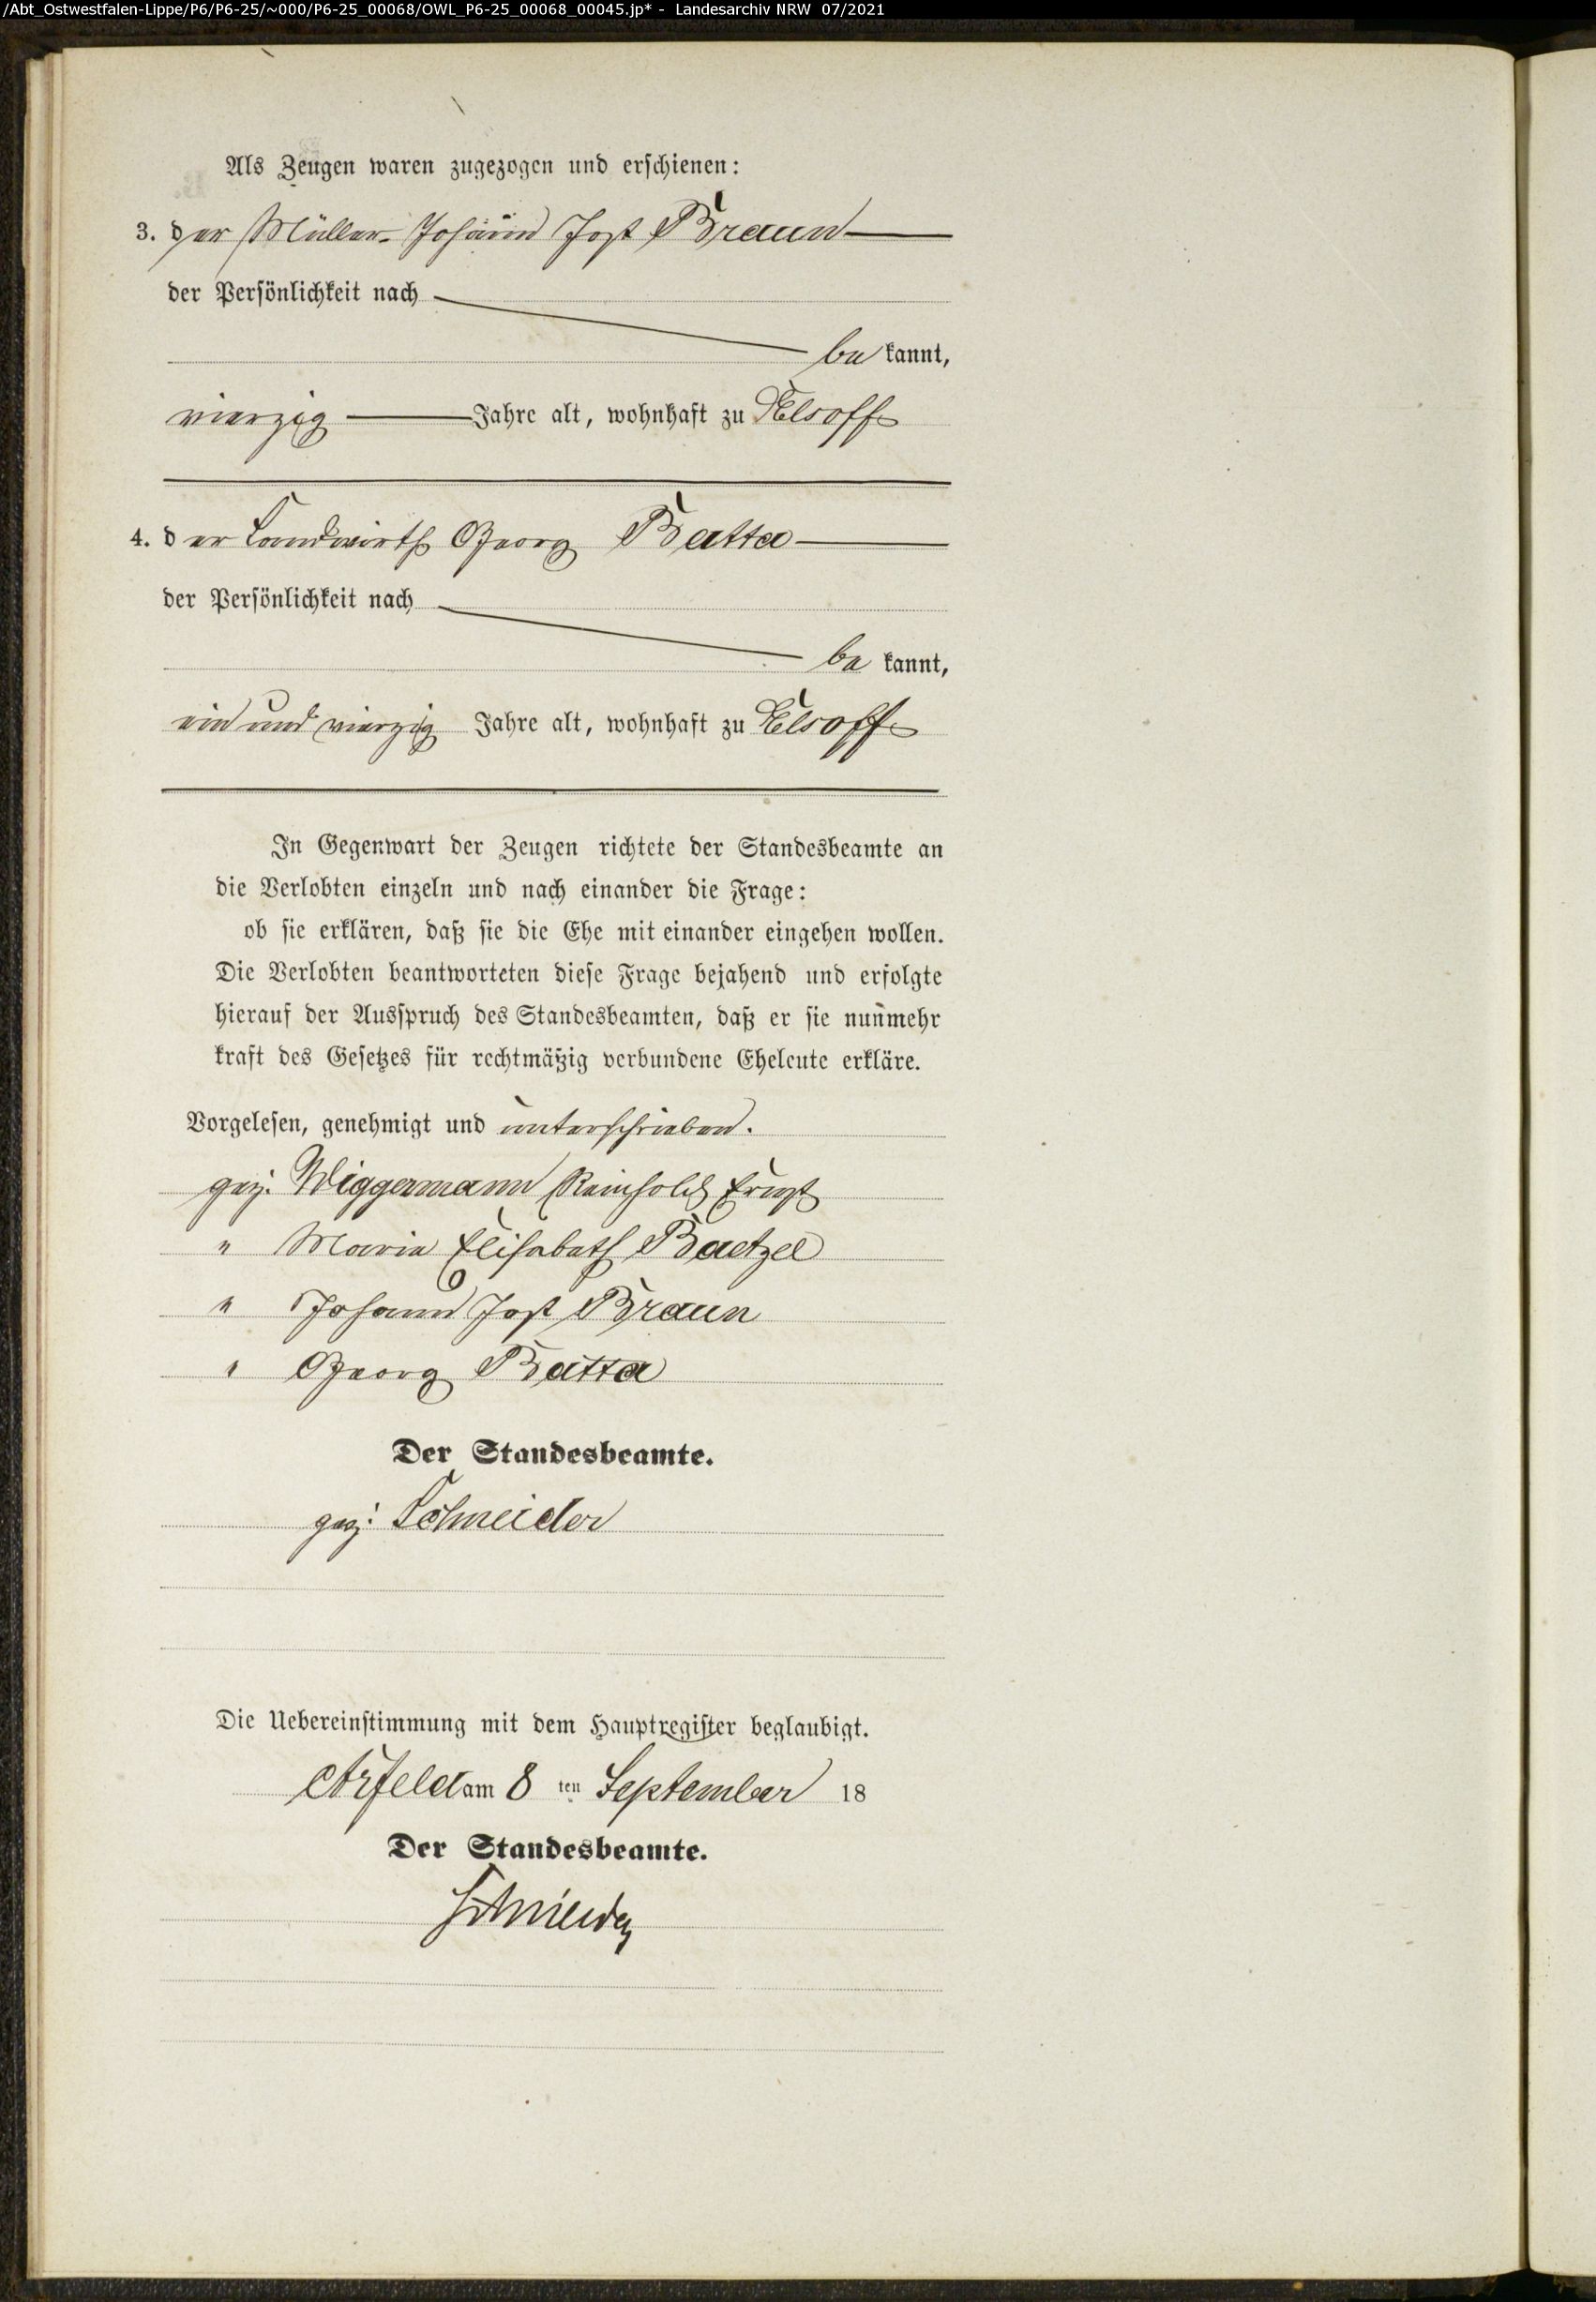 /Abt_Ostwestfalen-Lippe/P6/P6-25/~000/P6-25_00068/OWL_P6-25_00068_00045.jp* - Landesarchiv NRW 07/2021
Als Zeugen waren zugezogen und erschienen:
3. der Müller Johann Jost Braun
der Persönlichkeit nach
be kannt,
vierzig Jahre alt, wohnhaft zu Elsoff
4. der Landwirth Georg Batta
der Persönlichkeit nach
be kannt,
ein und vierzig Jahre alt, wohnhaft zu Elsoff
In Gegenwart der Zeugen richtete der Standesbeamte an
die Verlobten einzeln und nach einander die Frage:
ob sie erklären, daß sie die Ehe mit einander eingehen wollen.
Die Verlobten beantworteten diese Frage bejahend und erfolgte
hierauf der Ausspruch des Standesbeamten, daß er sie nunmehr
kraft des Gesetzes für rechtmäßig verbundene Eheleute erkläre.
Vorgelesen, genehmigt und unterschrieben.
gez. Wiggermann Reinhold Ernst
" Maria Elisabeth Baetzel
" Johann Jost Braun
" Georg Batta
Der Standesbeamte.
gez: Schneider
Die Uebereinstimmung mit dem Hauptregister beglaubigt.
Arfeld am 8 ten September 18
Der Standesbeamte.
Schneider